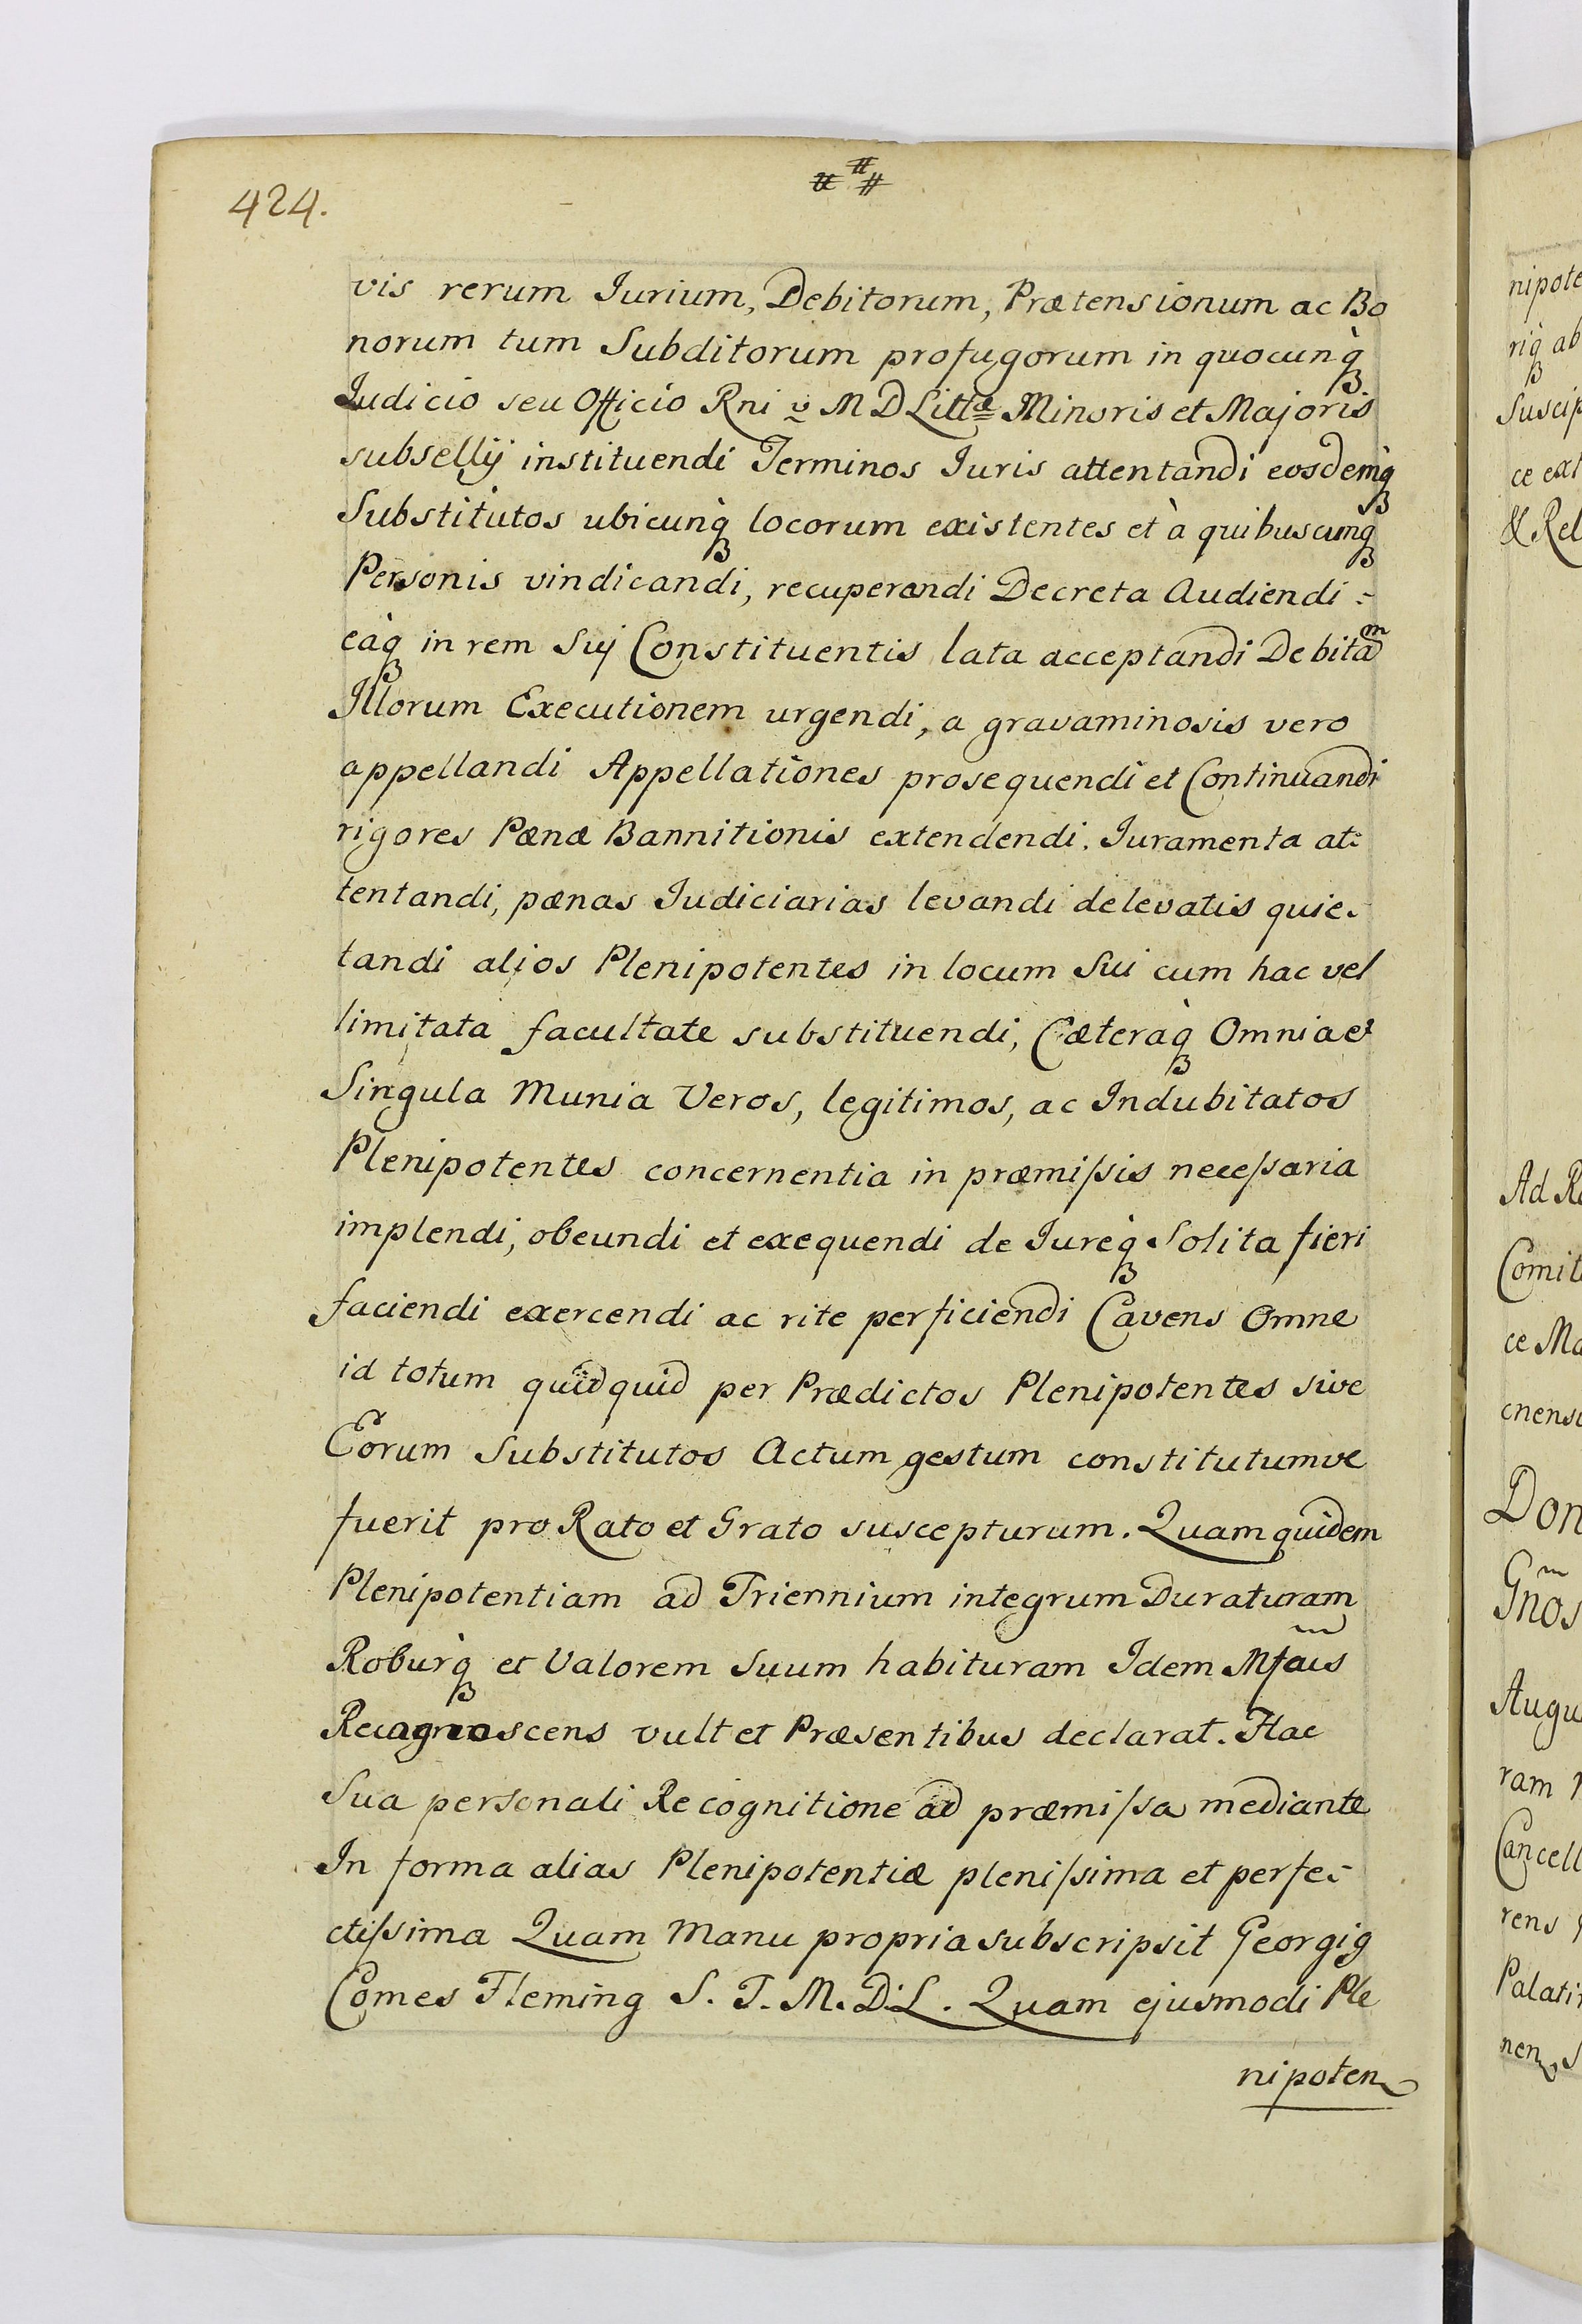 424.
vis rerum Jurium, Debitorum, Prætensionum ac Bo
norum tum Subditorum profugorum in quocunq̀
Judicio seu Officio Rni v M D Littæ Minoris et Majoris
subsellij instituendi Terminos Juris attentandi eosdemq̀
Substitutos ubicunq̀ locorum existentes et à quibuscunq
Personis vindicandi, recuperandi Decreta Audiendi :
eàq in rem Sui Constituentis lata acceptandi Debitam
Illorum Executionem urgendi, a gravaminosis vero
appellandi Appellationes prosequendi et Continuandi
rigores Pænæ Bannitionis extendendi. Juramenta at:
tentandi, pænas Judiciarias levandi de levatis quie-
tandi alios Plenipotentes in locum Sui cum hac vel
limitata facultate substituendi, Cæteraq̀ Omnia et
Singula Munia Veros, legitimos, ac Indubitatos
Plenipotentes concernentia in præmiſsis neceſsaria
implendi, obeundi et exequendi de Jureq̀ Solita fieri
faciendi exercendi ac rite perficiendi Cavens Omne
id totum quidquid per Prædictos Plenipotentes sive
Eorum Substitutos Actum gestum constitutumve
fuerit pro Rato et Grato suscepturum. Quam quidem
Plenipotentiam ad Triennium integrum Duraturam
Roburq̀ et Valorem Suum habituram Idem Mfcus
Recognoscens vult et Præsentibus declarat. Hac
Sua personali Recognitione ad præmiſsa mediante
In forma alias Plenipotentiæ pleniſsima et perfe-
ctiſsima Quam Manu propria subscripsit Georgig
Comes Fleming S. T. M. D. L. Quam ejusmodi Ple
nipoten
nipote
riq ab
Suscip
ce ext
& Rel
Ad Re
Comit
ce Ma
cnensi
Don
Gnos
Augu
ram
Cancell
rens
Palati
nen